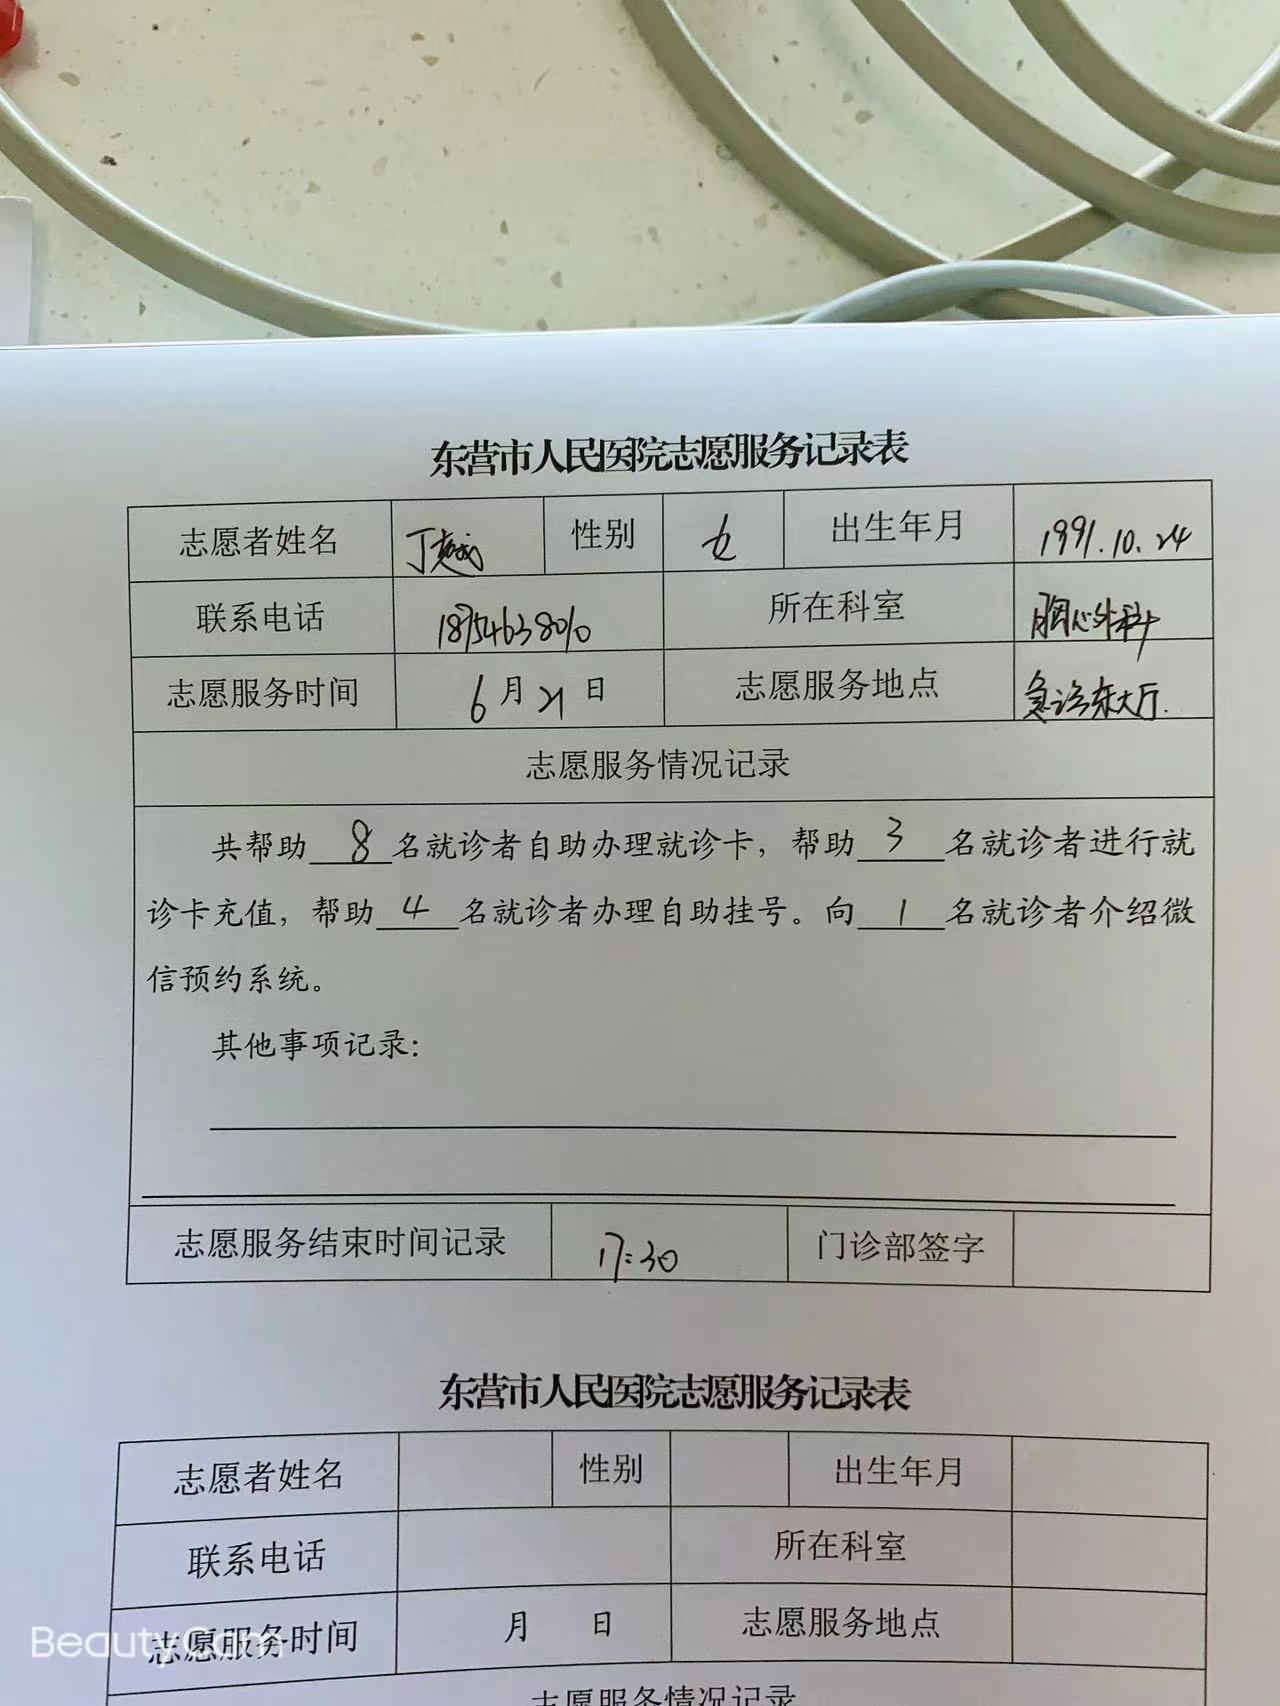 东营市人民医院志愿服务记录表
志愿者姓名 丁 性别 女 出生年月 1991.10.24
联系电话 18754638010 所在科室 胸心外科
志愿服务时间 6月21日 志愿服务地点 急诊东大厅.
志愿服务情况记录
共帮助 8 名就诊者自助办理就诊卡，帮助 3 名就诊者进行就
诊卡充值，帮助 4 名就诊者办理自助挂号。向 1 名就诊者介绍微
信预约系统。
其他事项记录：
志愿服务结束时间记录 17:30 门诊部签字
东营市人民医院志愿服务记录表
志愿者姓名 性别 出生年月
联系电话 所在科室
志愿服务时间 月 日 志愿服务地点
志愿服务情况记录
BeautyCam